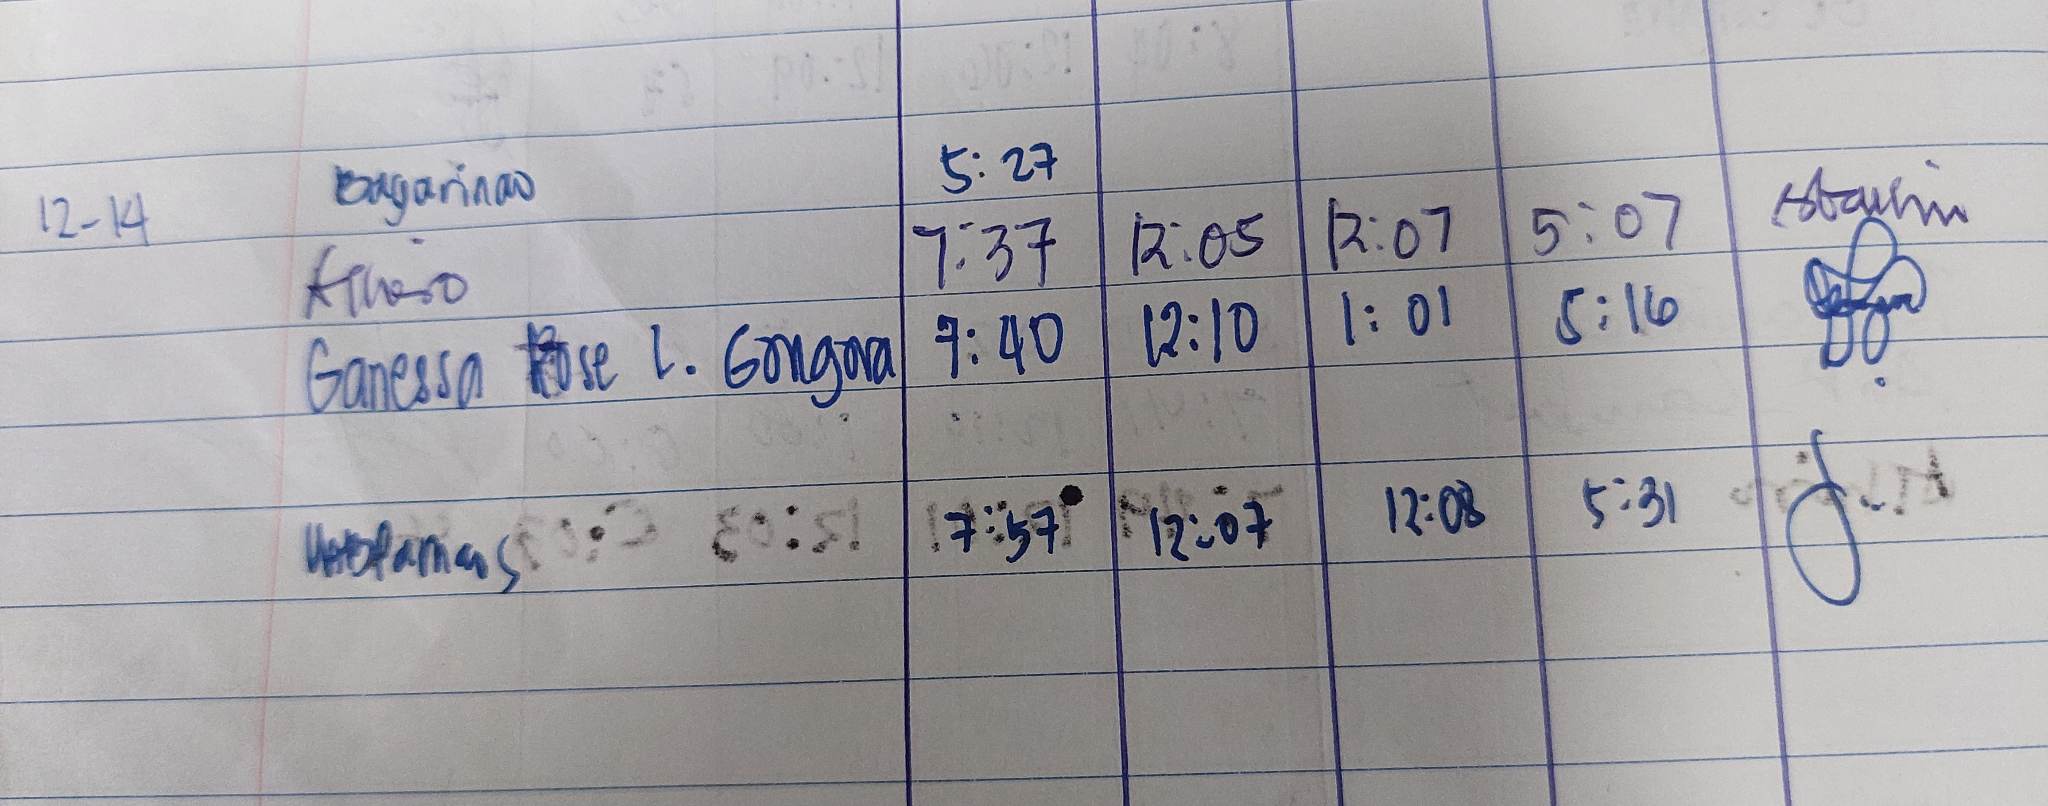 Bagarinao 5:27
12-14
7:37 12:05 12:07 5:07
Ganessa Rose L. Gongora 7:40 12:10 1:01 5:16
7:57 12:07 12:08 5:31